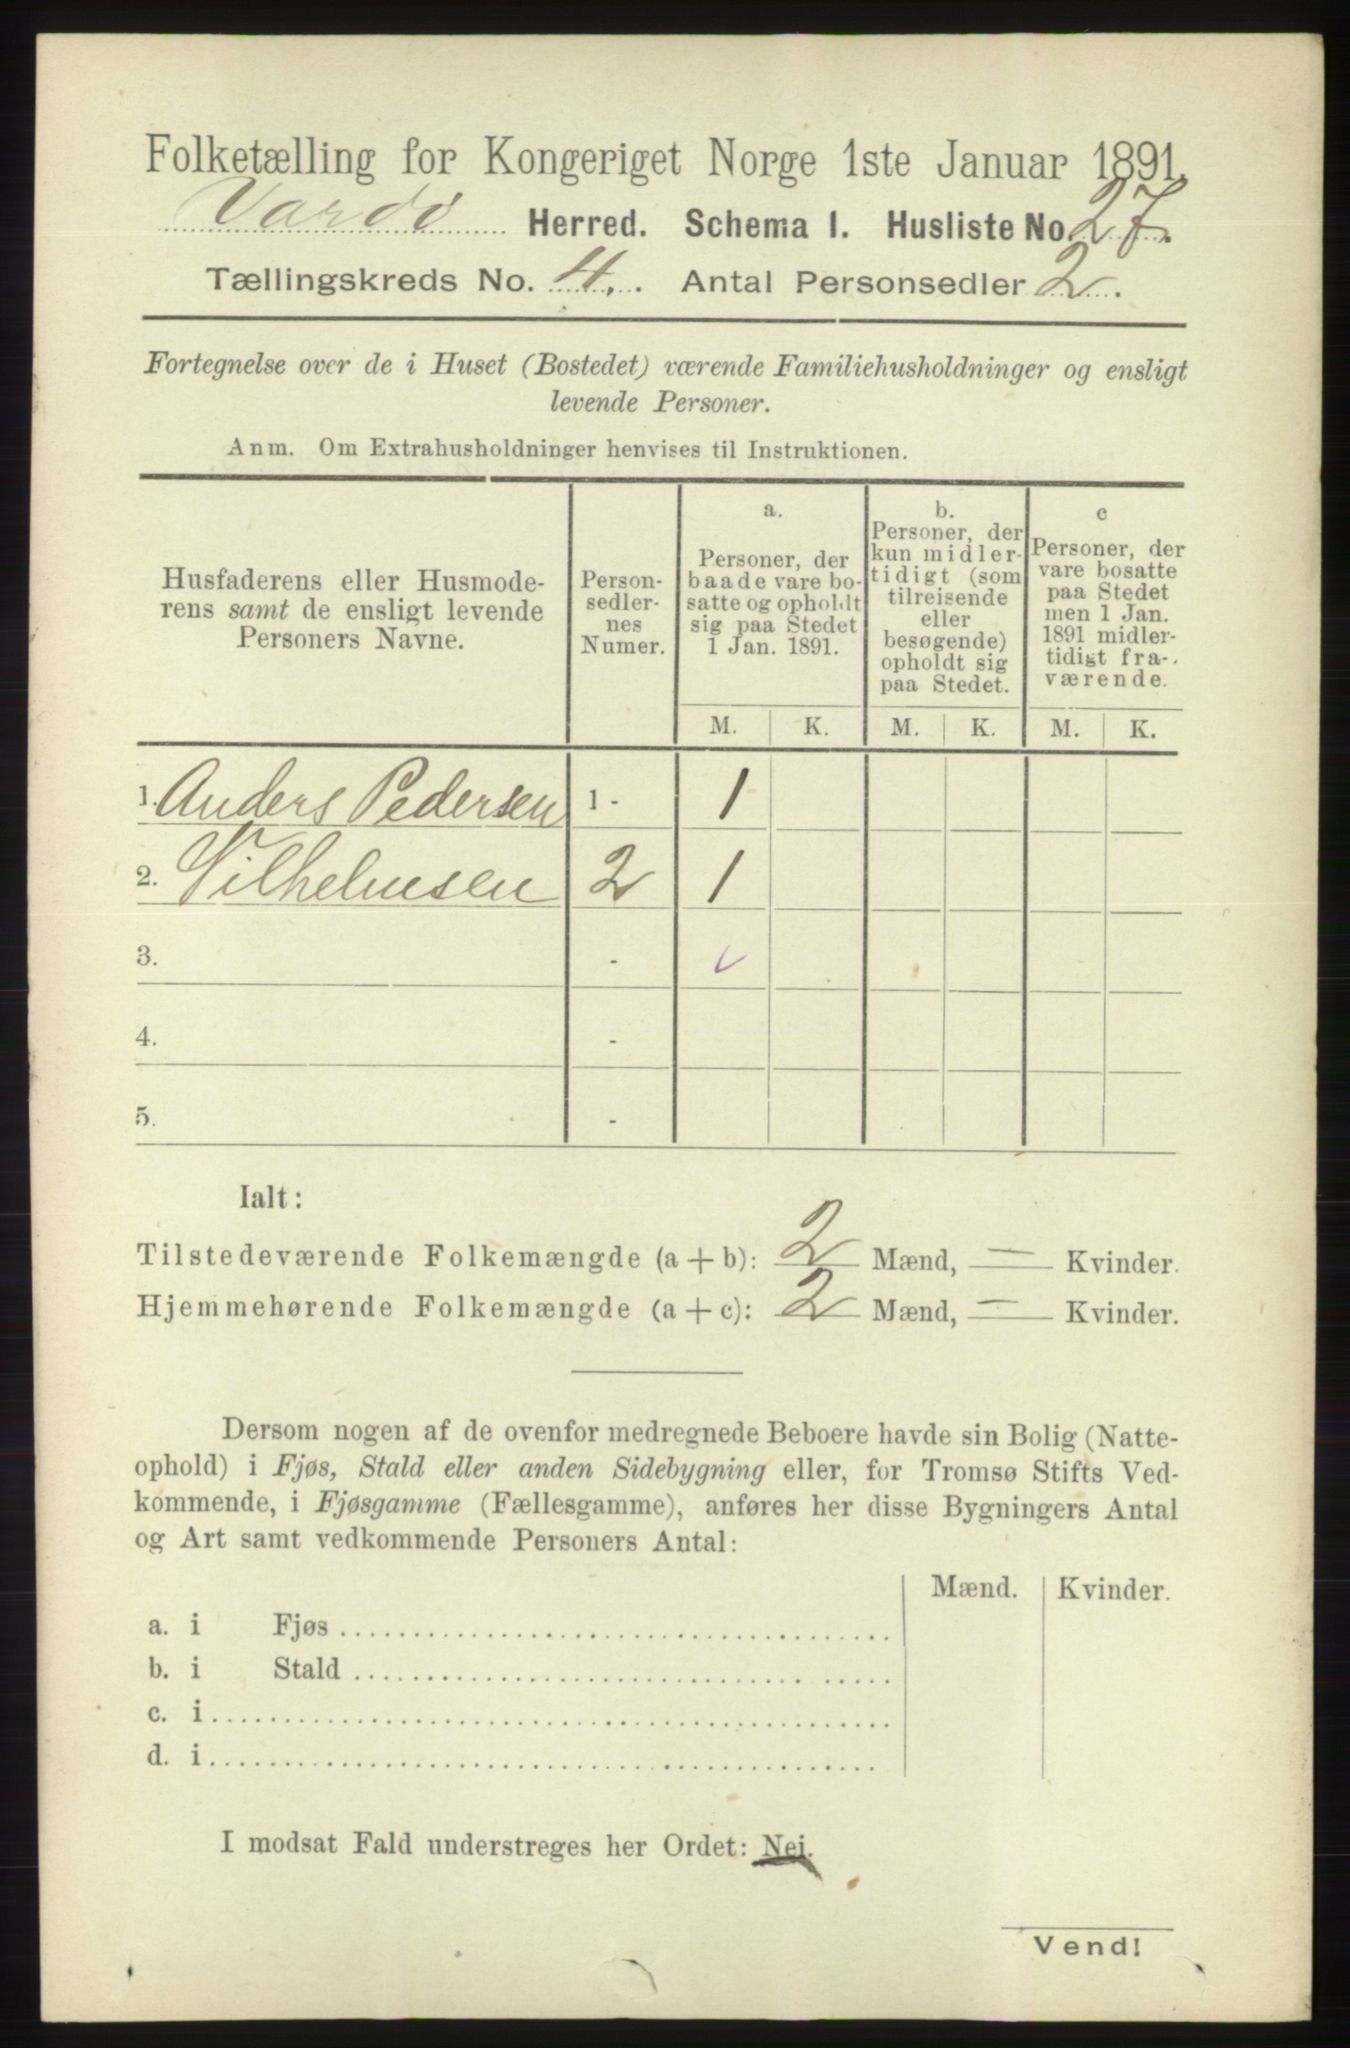 Folketælling for Kongeriget Norge 1ste Januar 1891.
Vardø Herred. Schema I. Husliste No. 27.
Tællingskreds No. 4. Antal Personsedler 2.
Fortegnelse over de i Huset (Bostedet) værende Familiehusholdninger og ensligt
levende Personer.
Anm. Om Extrahusholdninger henvises til Instruktionen.
Husfaderens eller Husmode-
rens samt de ensligt levende
Personers Navne.
Person-
sedler-
nes
Numer.
a.
Personer, der
baade vare bo-
satte og opholdt
sig paa Stedet
1 Jan. 1891.
b.
Personer, der
kun midler-
tidigt (som
tilreisende
eller
besøgende)
opholdt sig
paa Stedet.
c
Personer, der
vare bosatte
paa Stedet
men 1 Jan.
1891 midler-
tidigt fra-
værende.
M. K. M. K. M. K.
1. Anders Pedersen 1 - 1
2. Vilhelmsen 2 1
3. -
4. -
5. -
Ialt:
Tilstedeværende Folkemængde (a + b): 2 Mænd, — Kvinder.
Hjemmehørende Folkemængde (a + c): 2 Mænd, — Kvinder.
Dersom nogen af de ovenfor medregnede Beboere havde sin Bolig (Natte-
ophold) i Fjøs, Stald eller anden Sidebygning eller, for Tromsø Stifts Ved-
kommende, i Fjøsgamme (Fællesgamme), anføres her disse Bygningers Antal
og Art samt vedkommende Personers Antal:
Mænd. Kvinder.
a. i Fjøs
b. i Stald
c. i
d. i
I modsat Fald understreges her Ordet: Nei.
Vend!